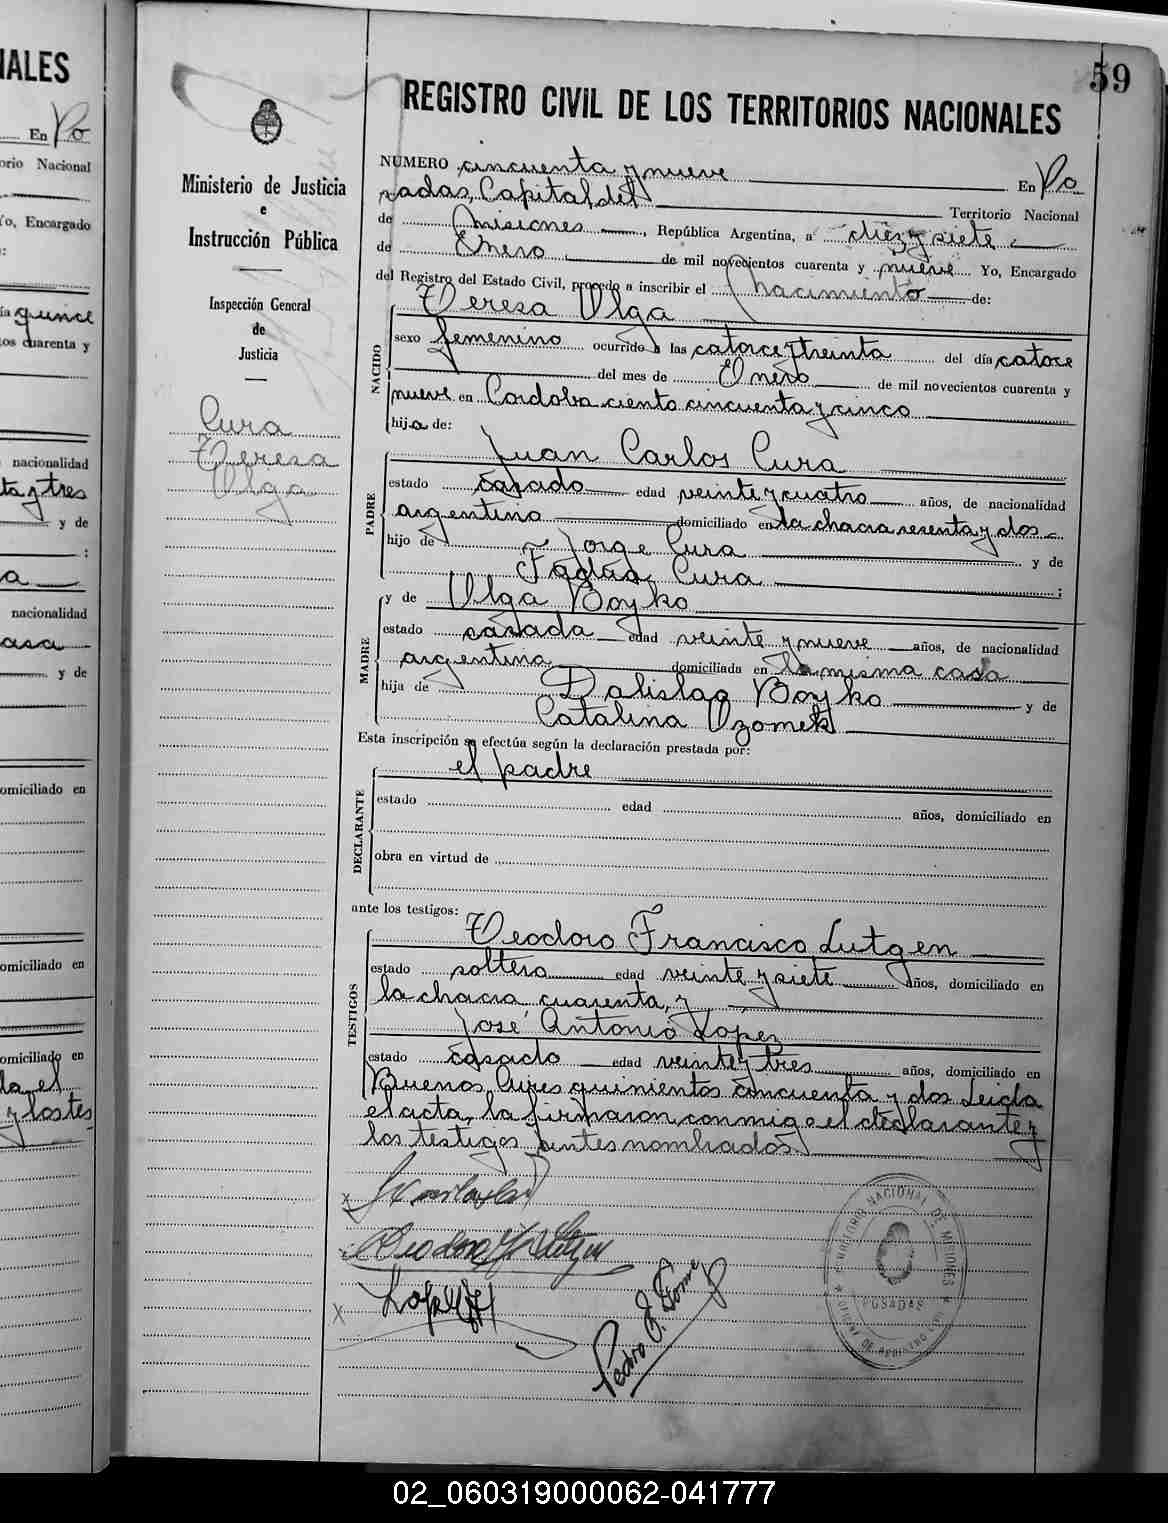 59
REGISTRO CIVIL DE LOS TERRITORIOS NACIONALES
Ministerio de Justicia
e
Instrucción Pública
Inspección General
de
Justicia
Cura
Teresa
Olga
NUMERO cincuenta y nueve En Po
sadas, Capital del Territorio Nacional
de Misiones, República Argentina, a diez y siete
de Enero de mil novecientos cuarenta y nueve Yo, Encargado
del Registro del Estado Civil, procedo a inscribir el nacimiento de:
Teresa Olga
NACIDO
sexo femenino ocurrido a las catorce y treinta del día catorce
del mes de Enero de mil novecientos cuarenta y
nueve en Cordoba ciento cincuenta y cinco
hija de:
Juan Carlos Cura
PADRE
estado casado edad veinte y cuatro años, de nacionalidad
argentino domiciliado en la chacra sesenta y dos
hijo de Jorge Cura y de
Cura ;
y de Olga Boyko
MADRE
estado casada edad veinte y nueve años, de nacionalidad
argentina domiciliada en la misma casa
hija de Boyko y de
Catalina Ozomek
Esta inscripción se efectúa según la declaración prestada por:
el padre
DECLARANTE
estado edad años, domiciliado en
obra en virtud de
ante los testigos:
Teodoro Francisco Lutgen
TESTIGOS
estado soltero edad veinte y siete años, domiciliado en
la chacra cuarenta, y
José Antonio Lopez
estado casado edad veinte y tres años, domiciliado en
Buenos Aires quinientos cincuenta y dos Leida
el acta, la firmaron conmigo el declarante y
los testigos antes nombrados
Lopez
Pedro J. Gome
TERRITORIO NACIONAL DE MISIONES
POSADAS
OFICINA DE REGISTRO CIVIL
NALES
En Po
orio Nacional
Yo, Encargado
ía quince
os cuarenta y
nacionalidad
ta y tres
y de
:
a
nacionalidad
asa
y de
omiciliado en
omiciliado en
omiciliado en
da el
y los tes
02_060319000062-041777